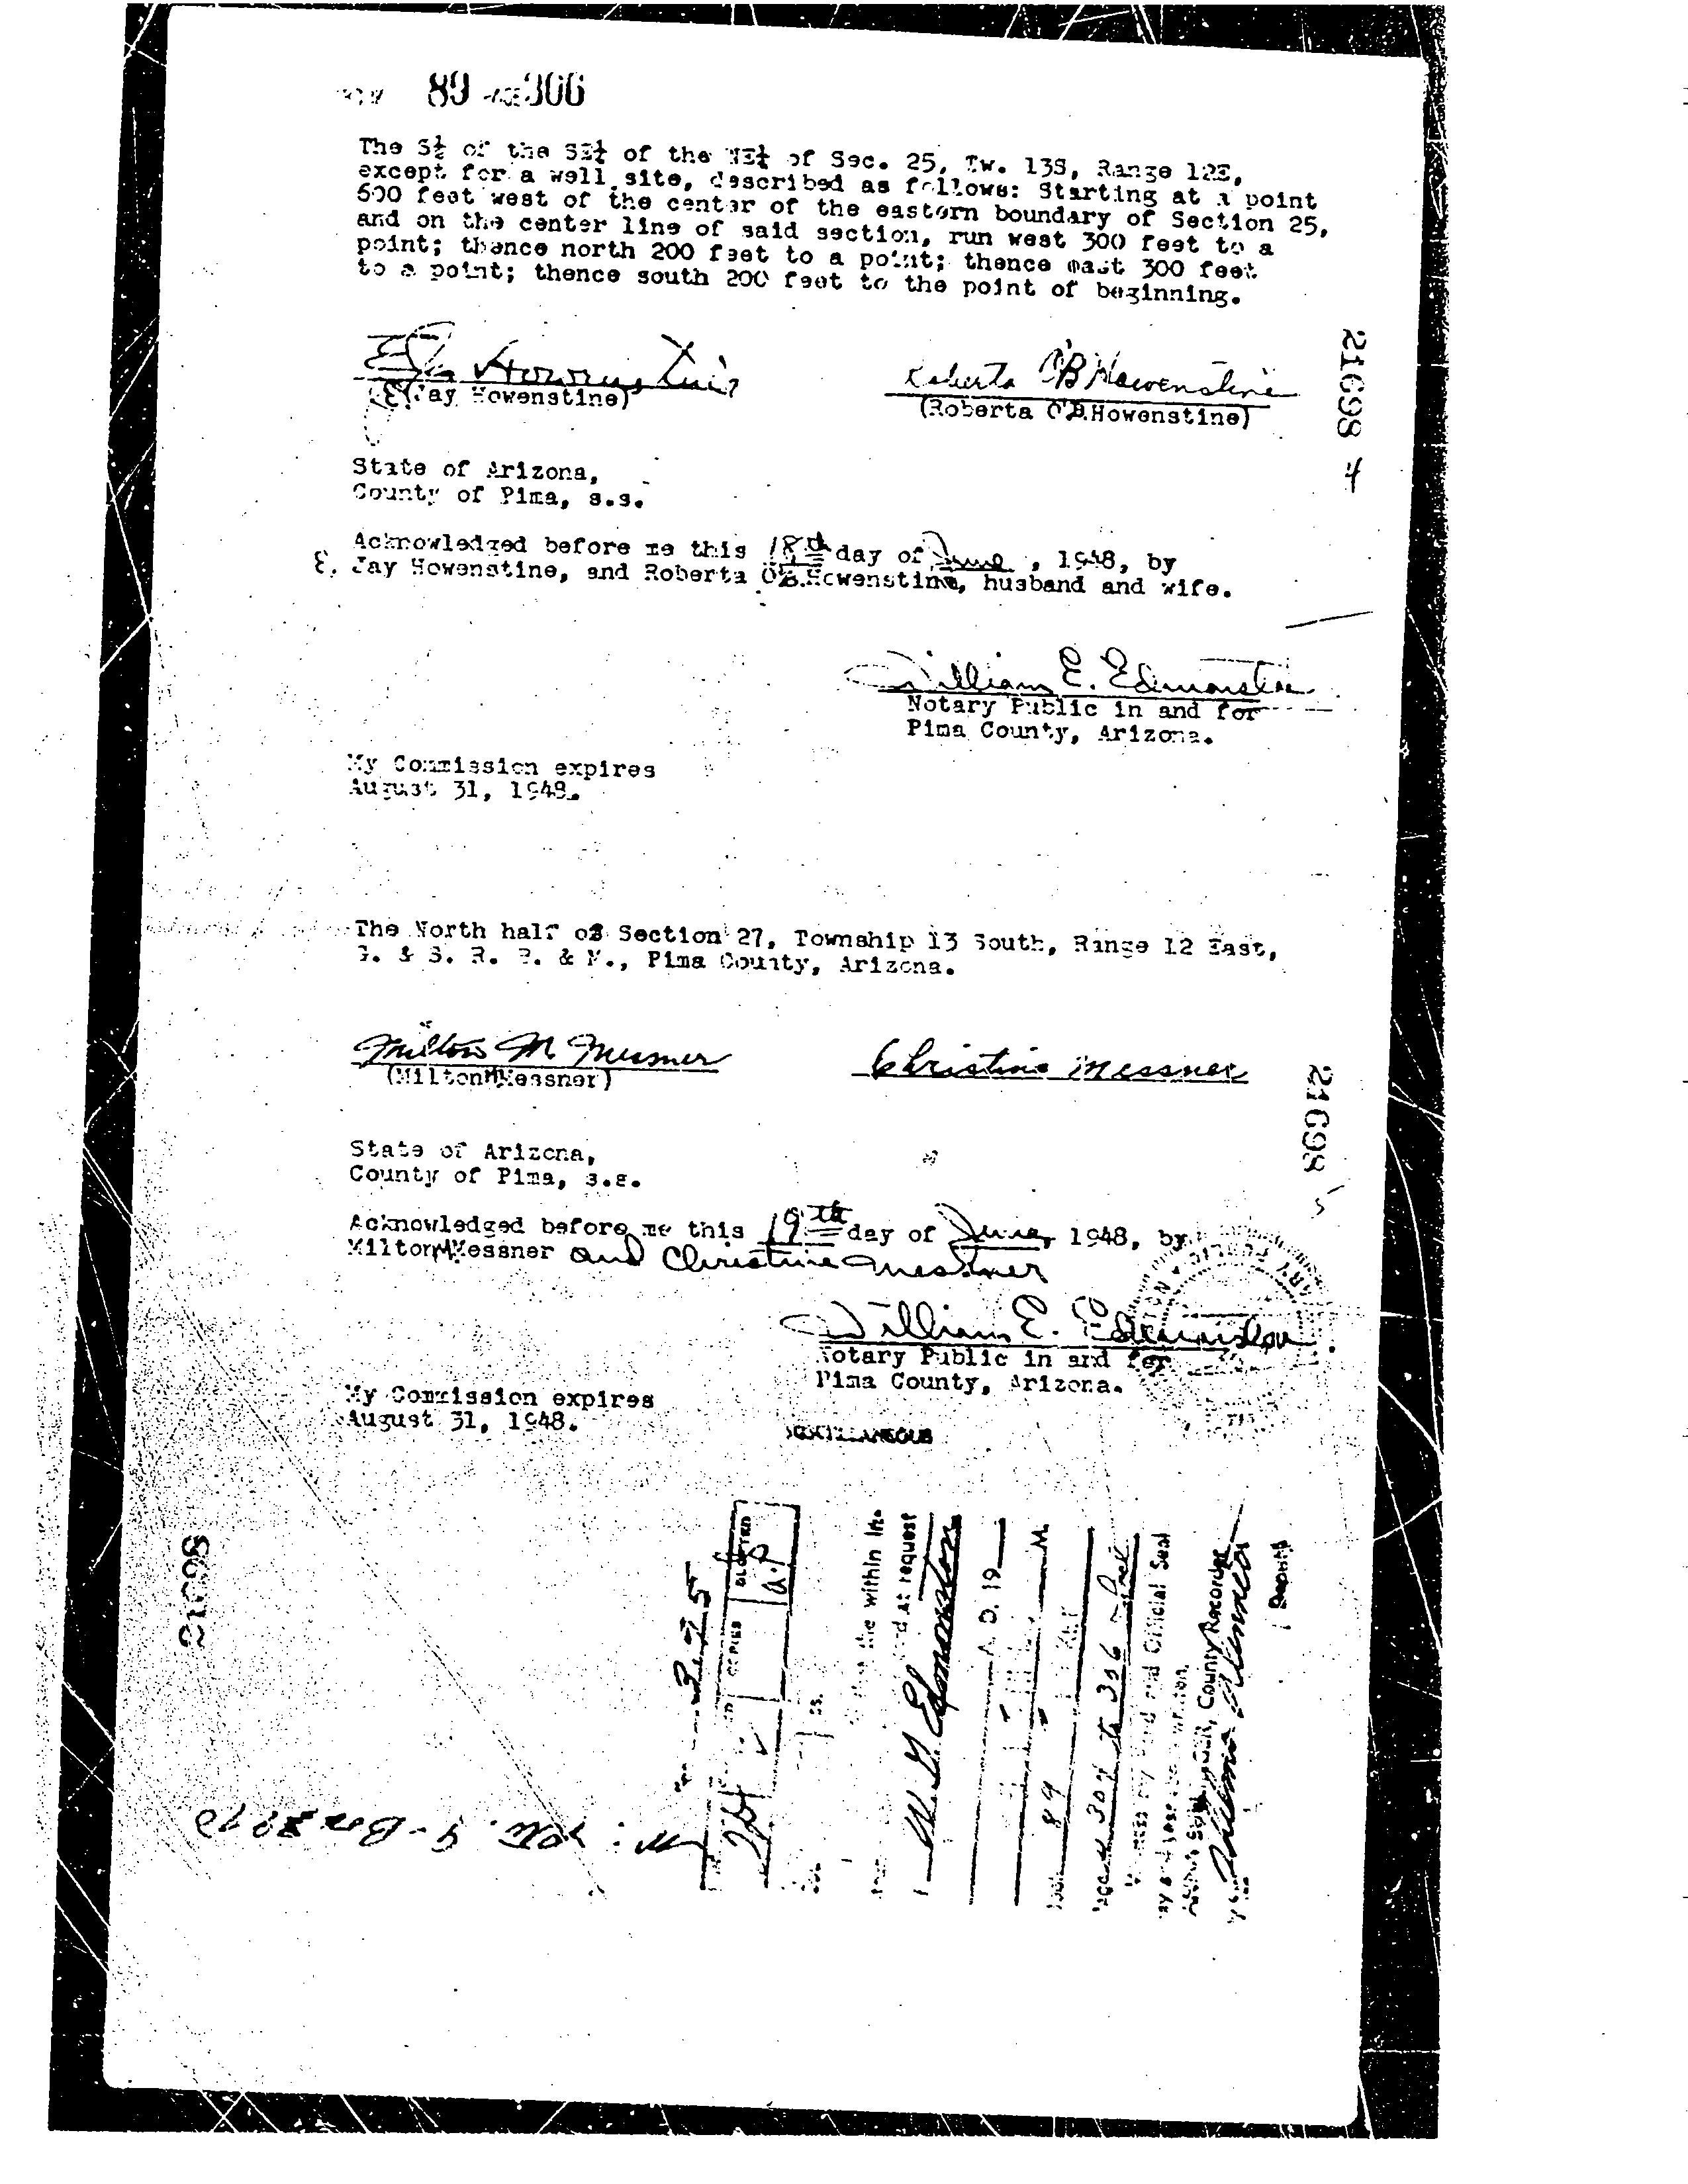 89 306
The S½ of the SE¼ of the NE¼ of Sec. 25, Tw. 13S, Range 12E,
except for a well site, described as follows: Starting at a point
600 feet west of the center of the eastern boundary of Section 25,
and on the center line of said section, run west 300 feet to a
point; thence north 200 feet to a point; thence east 300 feet
to a point; thence south 200 feet to the point of beginning.
E Jay Howenstine
Roberta O'B Howenstine
(E Jay Howenstine)
(Roberta O'B.Howenstine)
21698 4
State of Arizona,
County of Pima, s.s.
Acknowledged before me this 18th day of June, 1948, by
E. Jay Howenstine, and Roberta O'B.Howenstine, husband and wife.
William E. Edmonston
Notary Public in and for
Pima County, Arizona.
My Commission expires
August 31, 1948.
The North half of Section 27, Township 13 South, Range 12 East,
G. & S. R. B. & M., Pima County, Arizona.
Milton M Messner
Christine Messner
(Milton M Messner)
21698 5
State of Arizona,
County of Pima, s.s.
Acknowledged before me this 19th day of June, 1948, by
Milton M Messner and Christine Messner
William E. Edmonston
Notary Public in and for
Pima County, Arizona.
My Commission expires
August 31, 1948.
MISCELLANEOUS
21698
the within
at request
Edmonston
A. D. 19 M.
89
304 to 306
and Official Seal
County Recorder
Deputy